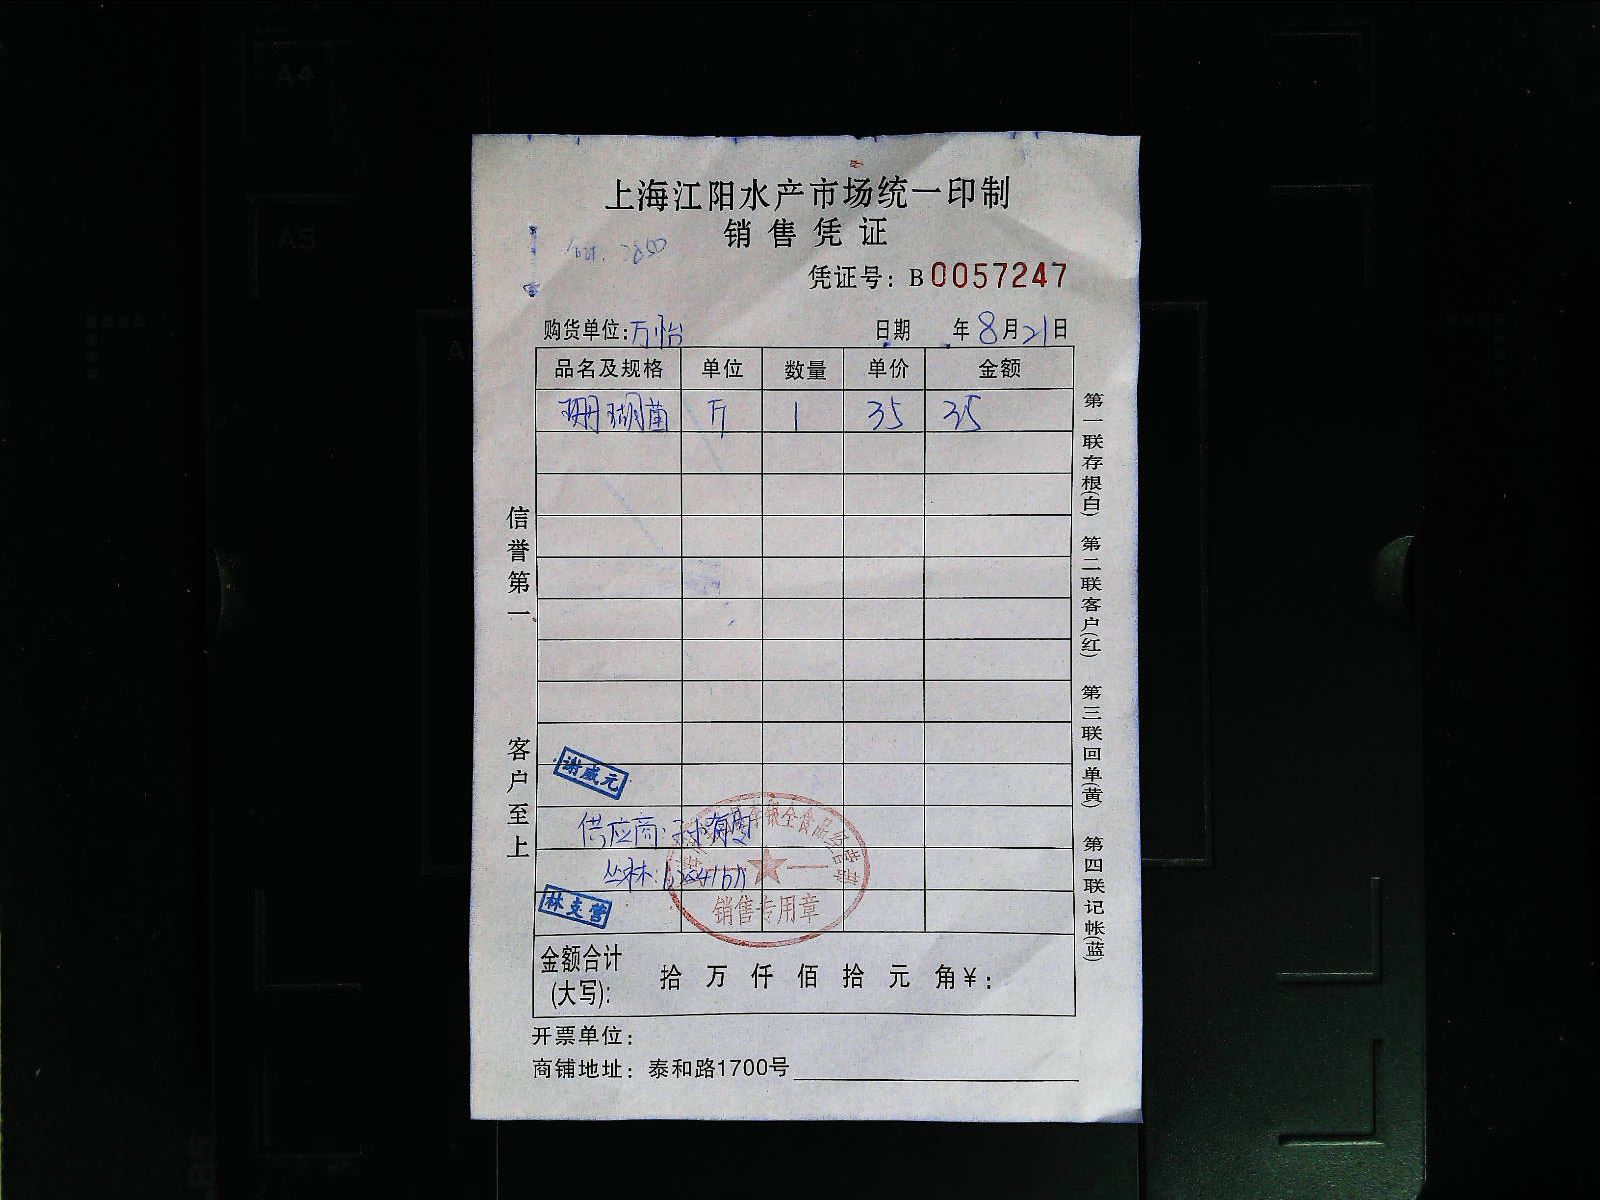 上海江阳水产市场统一印制
销售凭证
凭证号：B0057247
购货单位：万怡 日期 年8月21日
品名及规格 单位 数量 单价 金额
珊瑚菌 斤 1 35 35
信誉第一 客户至上
第一联存根(白) 第二联客户(红) 第三联回单(黄) 第四联记帐(蓝)
谢威元
供应商：
丛林：
林支营
银全食品经营部
销售专用章
金额合计(大写)： 拾 万 仟 佰 拾 元 角￥：
开票单位：
商铺地址：泰和路1700号